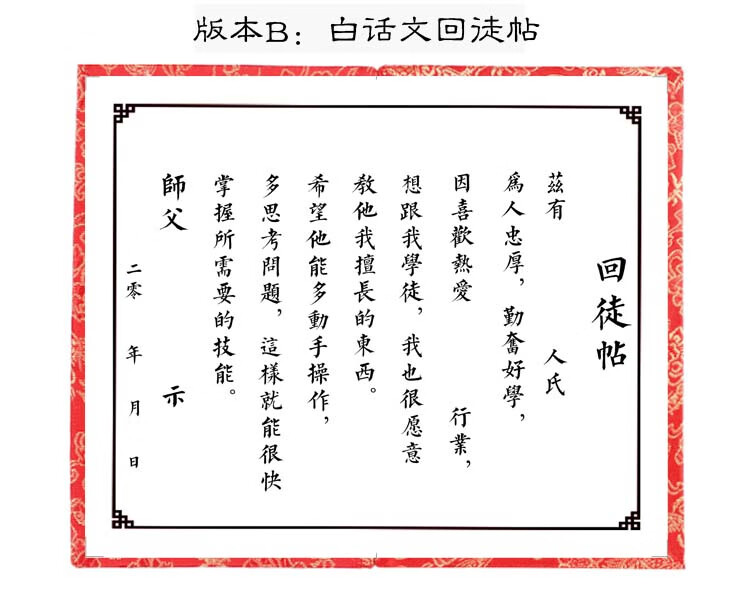 版本B：白话文回徒帖
回徒帖
茲有 人氏
爲人忠厚，勤奮好學，
因喜歡熱愛 行業，
想跟我學徒，我也很愿意
教他我擅長的東西。
希望他能多動手操作，
多思考問題，這樣就能很快
掌握所需要的技能。
師父 示
二零 年 月 日